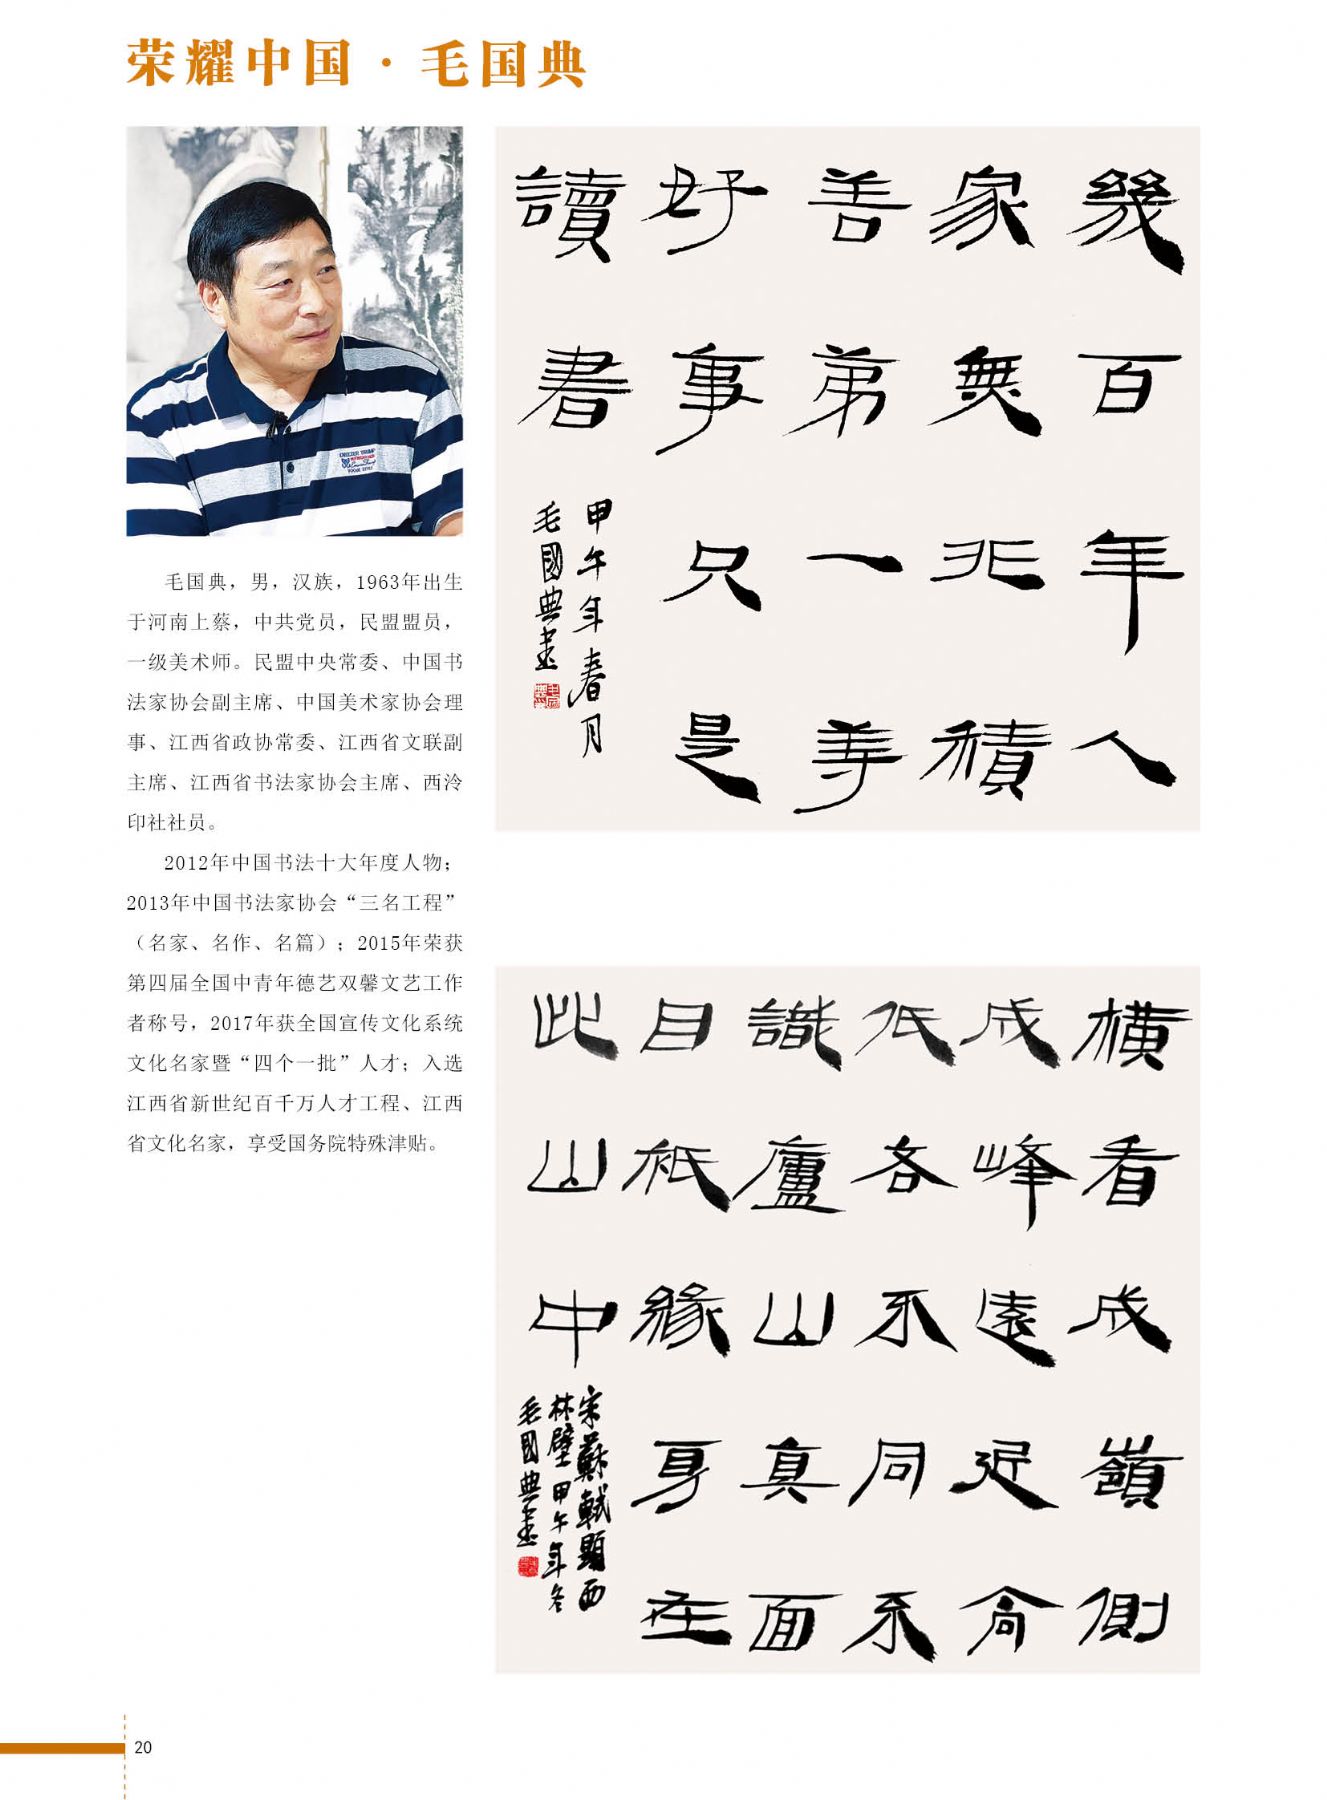 荣耀中国·毛国典
毛国典，男，汉族，1963年出生
于河南上蔡，中共党员，民盟盟员，
一级美术师。民盟中央常委、中国书
法家协会副主席、中国美术家协会理
事、江西省政协常委、江西省文联副
主席、江西省书法家协会主席、西泠
印社社员。
2012年中国书法十大年度人物；
2013年中国书法家协会“三名工程”
（名家、名作、名篇）；2015年荣获
第四届全国中青年德艺双馨文艺工作
者称号，2017年获全国宣传文化系统
文化名家暨“四个一批”人才；入选
江西省新世纪百千万人才工程、江西
省文化名家，享受国务院特殊津贴。
幾百年人
家無非積
善弟一等
好事只是
讀書
甲午年春月
毛國典書
橫看成嶺側
成峰遠近高
低各不同不
識廬山真面
目衹緣身在
此山中
宋蘇軾題西
林壁甲午年冬
毛國典書
20